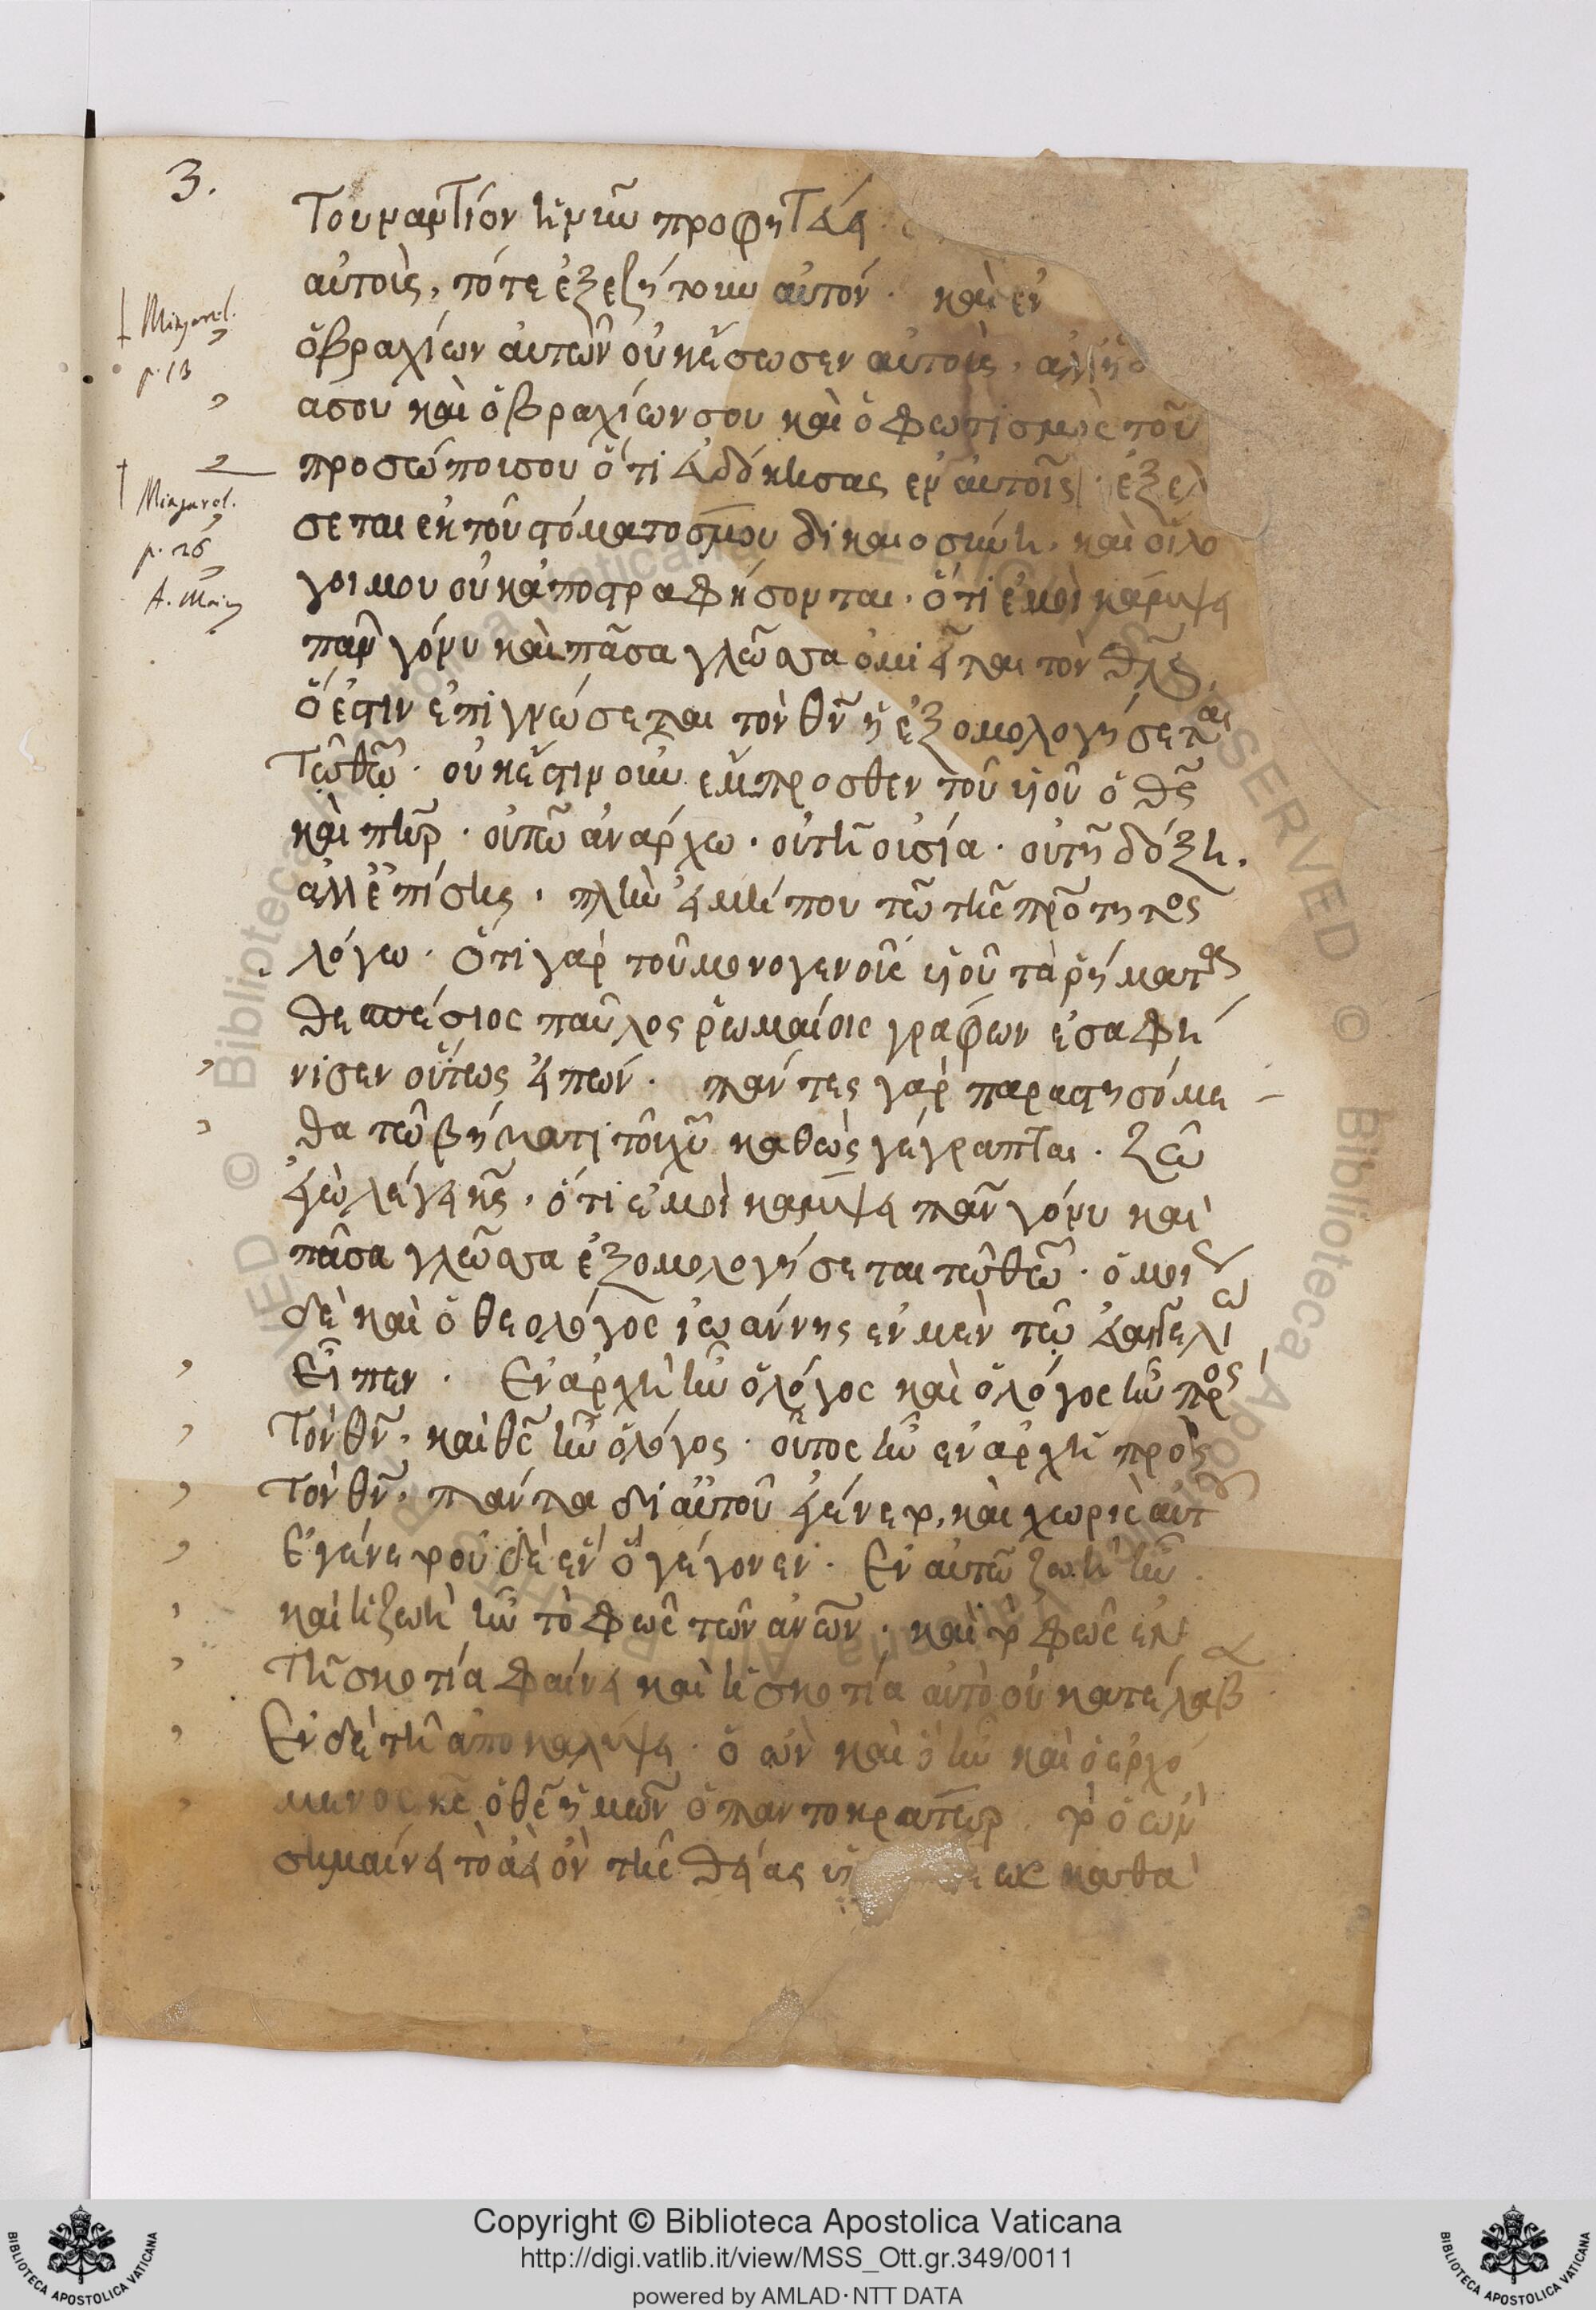 3.
Τουμαρτίον ἡμῶν προφητεία
αὐτοὺς, τότε ἐξεζήτουν αὐτόν. καὶ ἐν
ὁ βραχίων αὐτῶν οὐκ ἔσωσεν αὐτοὺς, ἀλλ' ἡ δ
Mingarel.
p. 13
ά σου καὶ ὁ βραχίων σου καὶ ὁ φωτισμὸς τοῦ
προσώπου σου ὅτι εὐδόκησας ἐν αὐτοῖς. ἐξελ
Mingarel.
σεται ἐκ τοῦ στόματός μου δικαιοσύνη, καὶ οἱ λό
p. 26
γοι μου οὐκ ἀποστραφήσονται. ὅτι ἐμοὶ κάμψει
πᾶν γόνυ καὶ πᾶσα γλῶσσα ὀμεῖται τὸν θν
ὅ ἐστιν ἐπιγνώσεται τὸν θν ἢ ἐξομολογήσεται
τῷ θῶ. οὐκ ἔστιν οὖν ἔμπροσθεν τοῦ υἱοῦ ὁ θς
καὶ πηρ. οὔπω ἀνάρχω. οὐ τῇ οὐσία. οὐ τῇ δόξη.
ἀλλ' ἐπίσης. πλὴν εἰ μή που τῶ τῆς πρότητος
λόγω. ὅτι γὰρ τοῦ μονογενοῦς υἱοῦ τὰ ῥήματα
θεσπέσιος παῦλος ῥωμαίοις γράφων ἐσαφή
νισεν οὕτως εἰπών. πάντες γὰρ παραστησόμε
θα τῶ βήματι τοῦ χυ καθὼς γέγραπται. ζῶ
ἐγὼ λέγει κς, ὅτι ἐμοὶ κάμψει πᾶν γόνυ καὶ
πᾶσα γλῶσσα ἐξομολογήσεται τῶ θῶ. ὁμοί
δὲ καὶ ὁ θεολόγος ἰωάννης ἐν μὲν τῷ εὐαγγελί
εἶπεν. Ἐν ἀρχῆ ἦν ὁ λόγος καὶ ὁ λόγος ἦν πρὸς
τὸν θν, καὶ θς ἦν ὁ λόγος. οὗτος ἦν ἐν ἀρχῆ πρὸς
τὸν θν. πάντα δι' αὐτοῦ ἐγένετο, καὶ χωρὶς αὐτ
ἐγένετο οὐδὲ ἓν ὃ γέγονεν. Ἐν αὐτῶ ζωὴ ἦν
καὶ ἡ ζωὴ ἦν τὸ φῶς τῶν ἀνῶν. καὶ τὸ φῶς ἐν
τῆ σκοτία φαίνει καὶ ἡ σκοτία αὐτὸ οὐ κατέλαβ
Ἐν δὲ τῆ ἀποκαλύψει. ὁ ὢν καὶ ὁ ἦν καὶ ὁ ἐρχό
μενος κς ὁ θς ἡμῶν ὁ παντοκράτωρ. τὸ ὁ ὢν
σημαίνει τὸ ἀεὶ ὂν τῆς θείας καθὰ
Copyright © Biblioteca Apostolica Vaticana
http://digi.vatlib.it/view/MSS_Ott.gr.349/0011
powered by AMLAD·NTT DATA